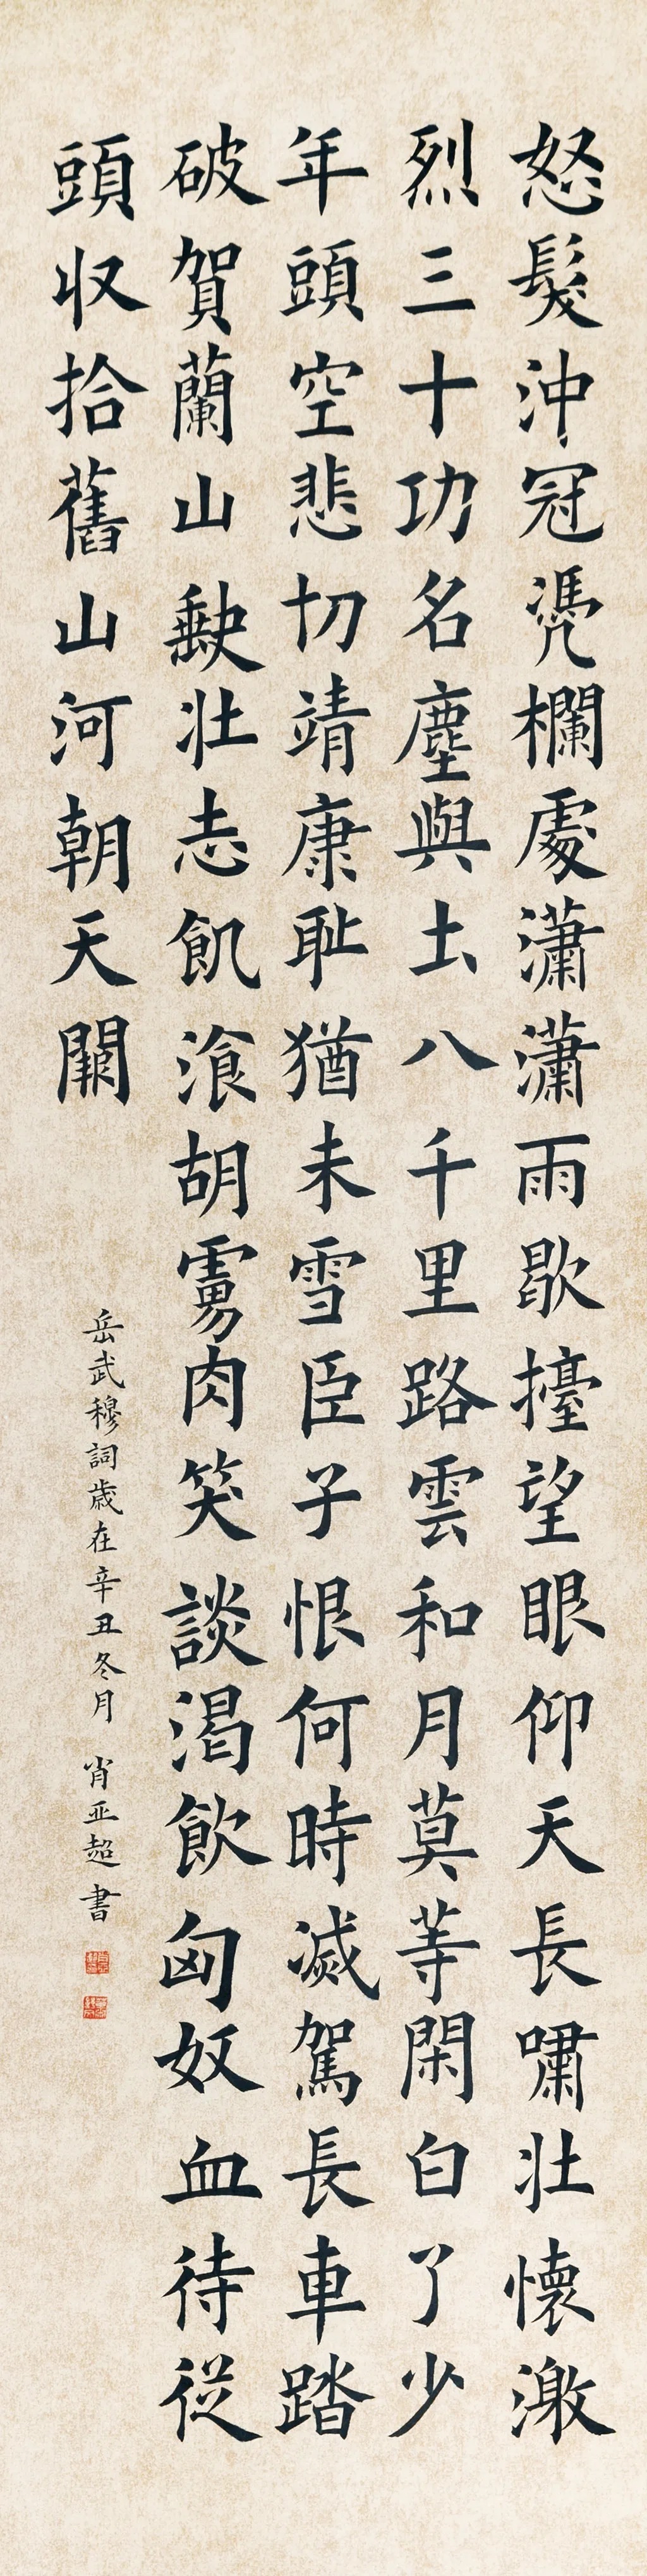 怒髮沖冠憑欄處瀟瀟雨歇擡望眼仰天長嘯壯懷激
烈三十功名塵與土八千里路雲和月莫等閑白了少
年頭空悲切靖康恥猶未雪臣子恨何時滅駕長車踏
破賀蘭山缺壯志飢飡胡虜肉笑談渴飲匈奴血待從
頭收拾舊山河朝天闕
岳武穆詞歲在辛丑冬月 肖亚超書